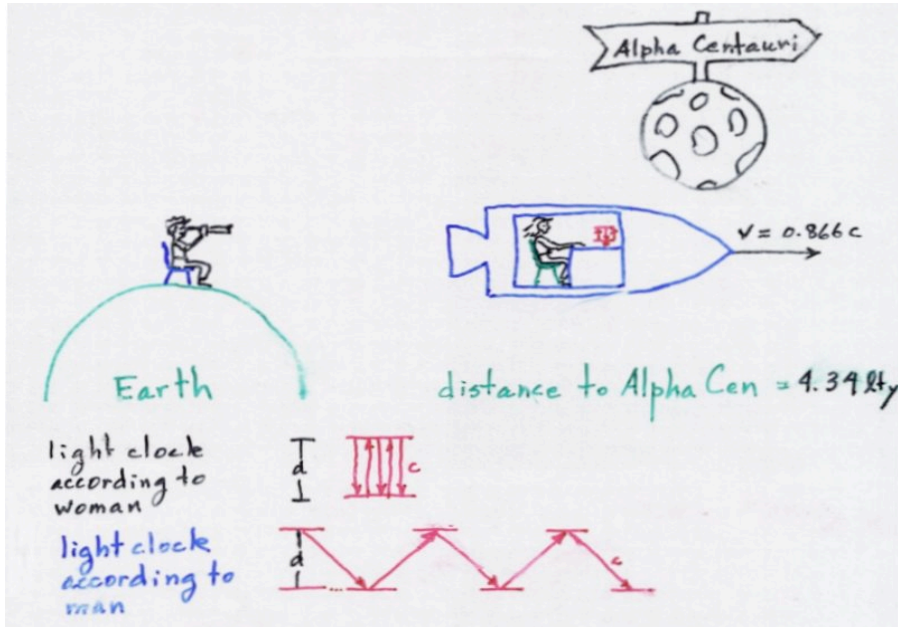 Alpha Centauri
v = 0.866c
Earth
distance to Alpha Cen = 4.34 lty
light clock
according to
woman
d
c
light clock
according to
man
d
...
c